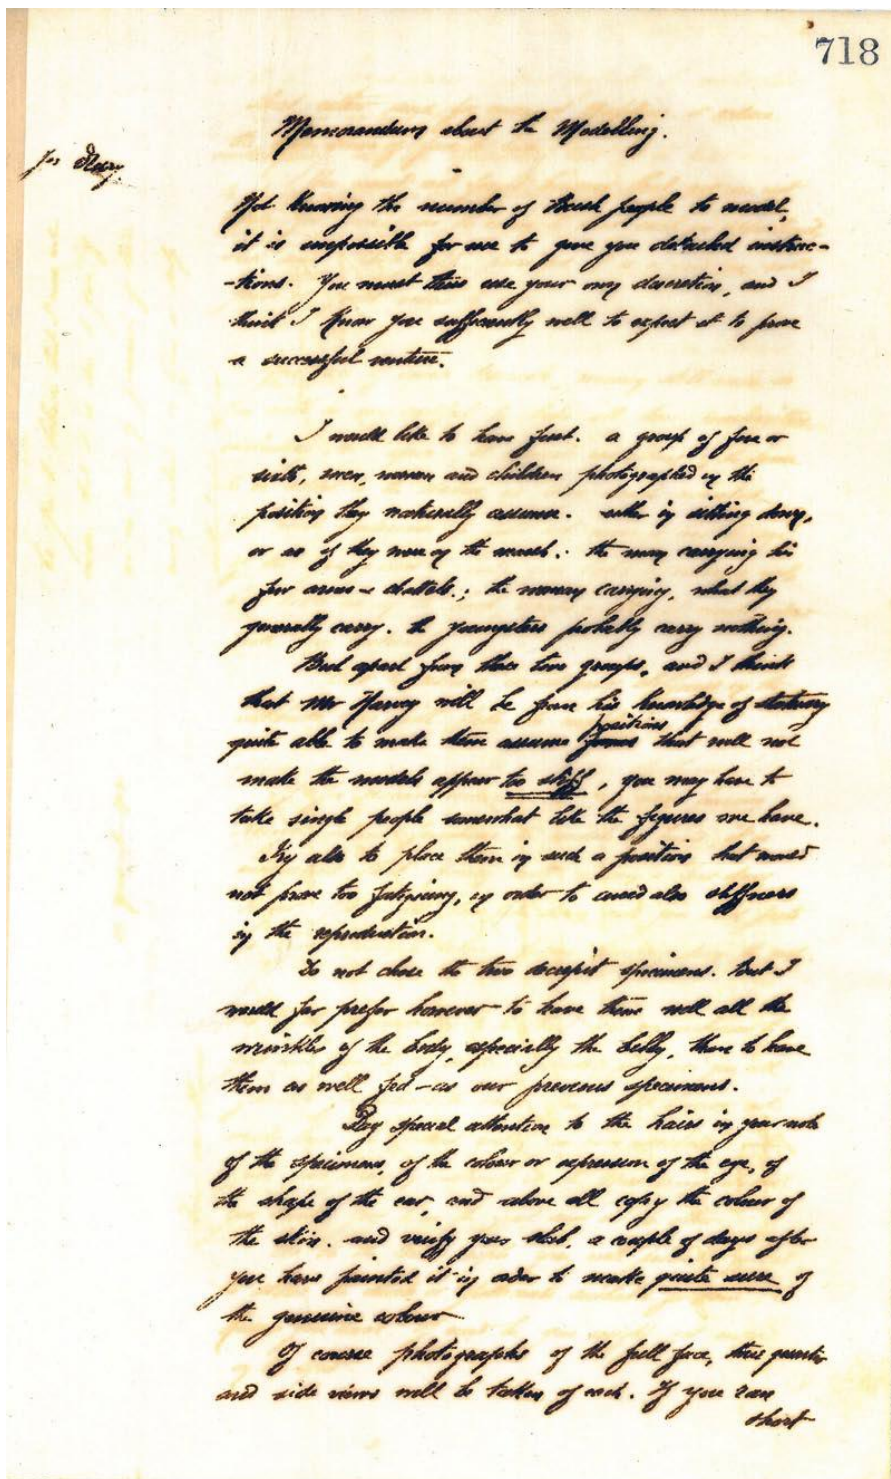 718
Memorandum about the Modelling.
for Drury
Not knowing the number of Bush people to model,
it is impossible for me to give you detailed instruc-
-tions. You must then use your own discretion, and I
think I know you sufficiently well to expect it to prove
a successful venture.
I would like to have first. a group of five or
six, men, women and children photographed in the
position they naturally assume. either in sitting down,
or as if they were on the march.: the man carrying his
few arms & chattels.; the woman carrying, what they
generally carry. the youngsters probably carry nothing.
But apart from these two groups, and I think
that Mr will be from his knowledge of statuary
quite able to make them assume positions that will not
make the models appear too stiff, you may have to
take single people somewhat like the figures we have.
Try also to place them in such a position that would
not prove too fatiguing, in order to avoid also stiffness
in the reproduction.
Do not chose the two decrepit specimens. But I
would far prefer however to have them with all the
wrinkles of the body, especially the belly, than to have
them as well fed – as our previous specimens.
Pay special attention to the hairs in your note
of the specimens, of the colour or expression of the eye, of
the shape of the ear, and above all copy the colour of
the skin. and verify your a couple of days after
you have painted it in order to make quite sure of
the genuine colour
Of course photographs of the full face, three quarter
and side views will be taken of each. If you can
short